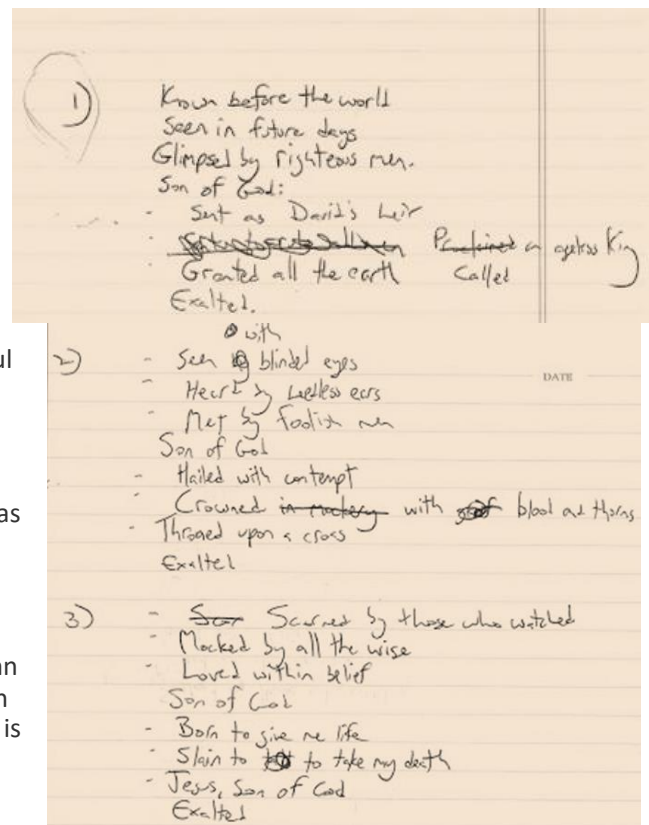 1)
Known before the world
Seen in future days
Glimpsed by righteous men.
Son of God:
- Sent as David's heir
- Proclaimed an ageless King
Granted all the earth Called
Exalted.
with
2) - Seen by blinded eyes
DATE
- Heard by heedless ears
- Met by foolish men
Son of God
- Hailed with contempt
- Crowned in mockery with blood and thorns
- Throned upon a cross
Exalted
3) - Scor Scorned by those who watched
- Mocked by all the wise
- Loved within belief
Son of God
- Born to give me life
- Slain to to take my death
- Jesus, Son of God
Exalted
ul
as
an
n
is